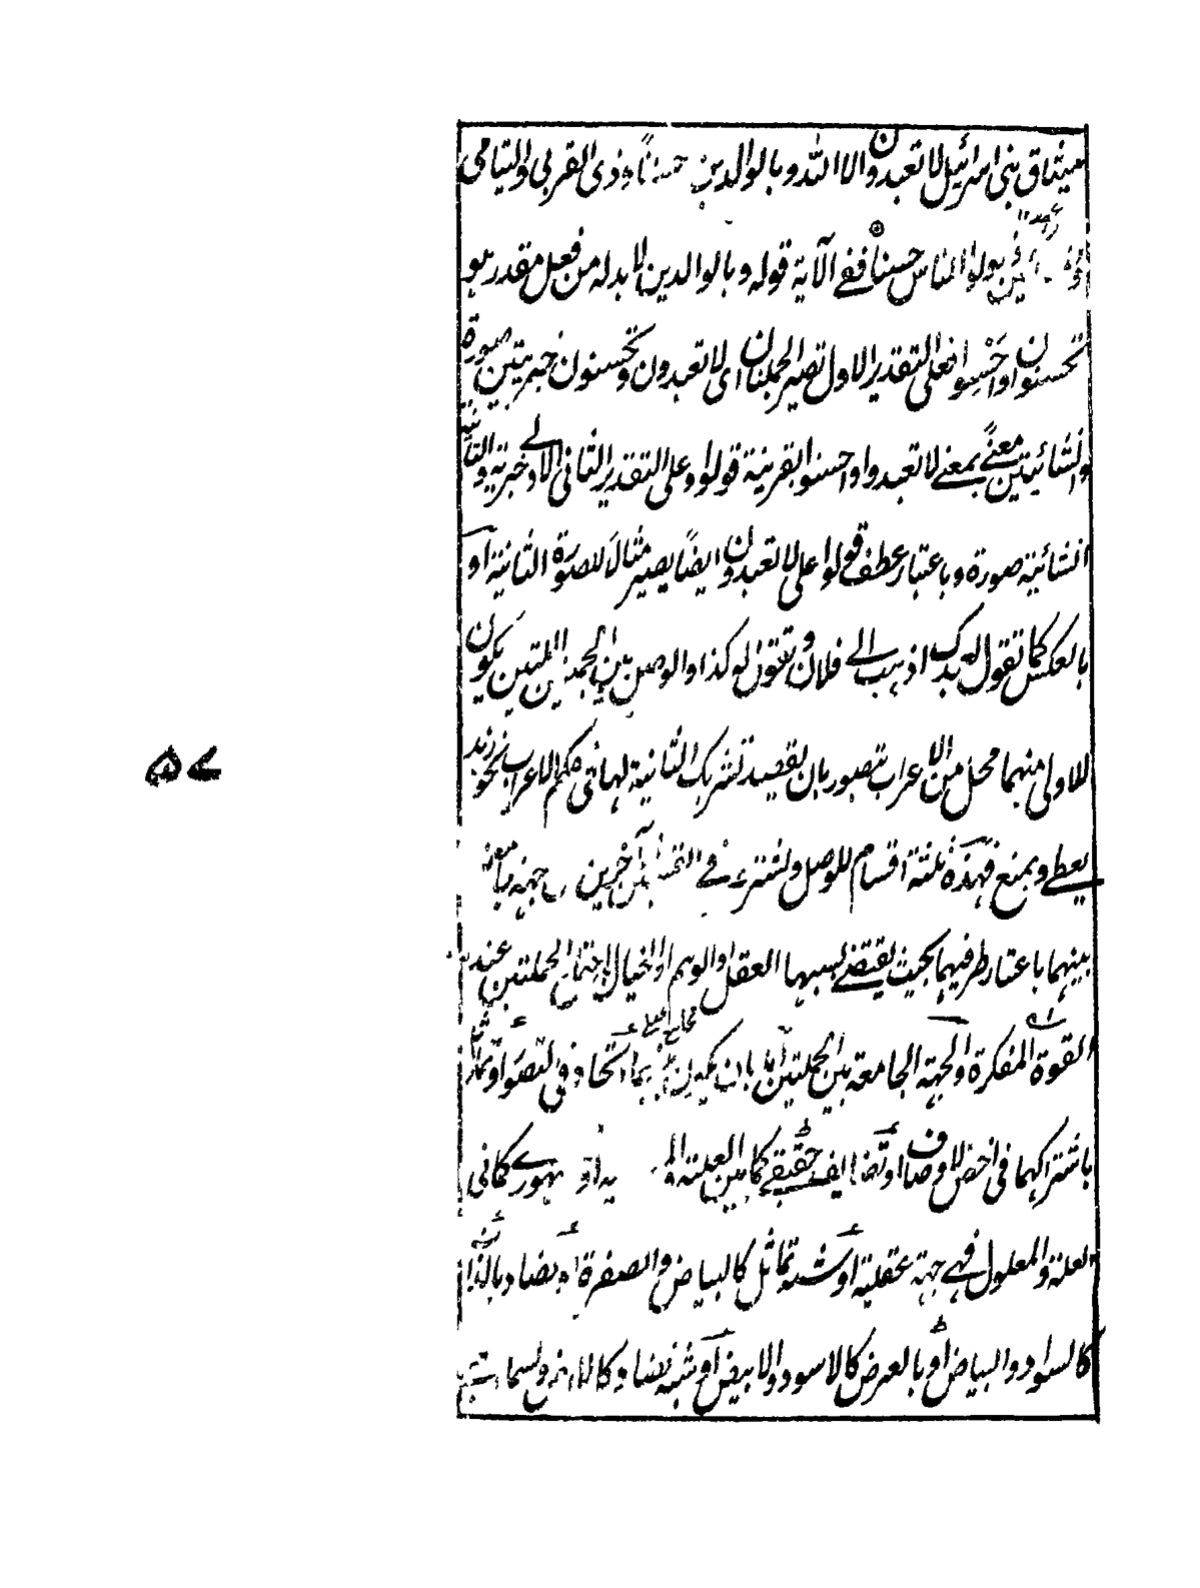 ميثاق بنى اسرائيل لا تعبدون الا الله وبالوالدين حسنا وذى القربى واليتامى
وقولوا للناس حسنا ففى الآية قوله وبالوالدين لا بد له من فعل مقدر هو
تحسنون او احسنوا فعلى التقدير الاول تصير الجملتان اى لا تعبدون وتحسنون خبريتين صورة
وانشائيتين معنًى بمعنى لا تعبدوا واحسنوا بقرينة قولوا وعلى التقدير الثانى الاولى خبرية والثانية
انشائية صورة وباعتبار عطف قولوا على لا تعبدون ايضًا يصير مثالًا للصورة الثانية او
بالعكس كما تقول اذهب الى فلان وتقول له كذا والوصل بين الجملتين اللتين يكون
للاولى منهما محل من الاعراب يتصور بان يقصد تشريك الثانية لها فى حكم الاعراب نحو زيد
يعطى ويمنع فهذه ثلثة اقسام للوصل ويشترط فى آخرين جهة جامعة
بينهما باعتبار طرفيهما بحيث يقتضى بسببها العقل او الوهم او الخيال اجتماع الجملتين عند
القوة المفكرة والجهة الجامعة بين الجملتين اما بان يكون بينهما اتحاد فى التصور او تماثل
باشتراكهما فى اخص الاوصاف او تضايف حقيقى كما بين العلة
العلة والمعلول فهى جهة عقلية او شبه تماثل كالبياض والصفرة او تضاد بالذات
كالسواد والبياض او بالعرض كالاسود والابيض او شبه تضاد كالارض والسماء
۵۷